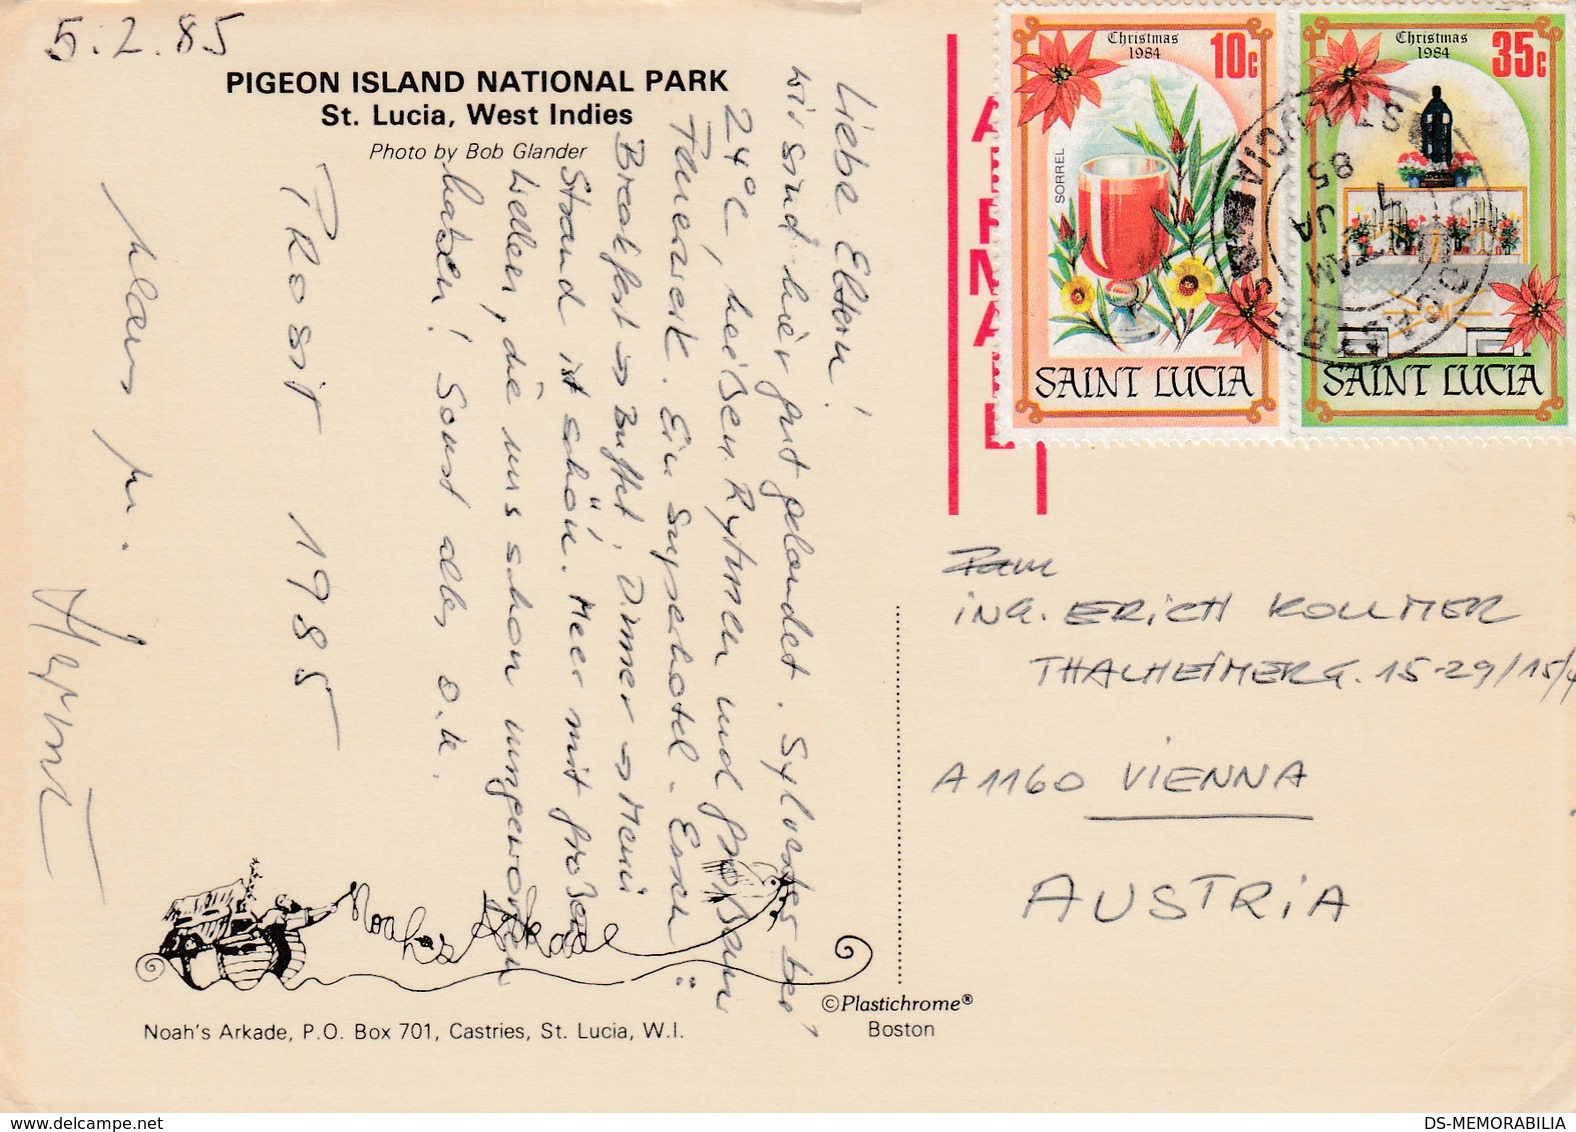 5.2.85
PIGEON ISLAND NATIONAL PARK
St. Lucia, West Indies
Photo by Bob Glander
Liebe Eltern!
wir sind hier gut gelandet. Sylvester bei
24°C, heißen Rytmen und großem
Feuerwerk. Ein Superhotel - Essen:
Breakfest → Buffet, Dinner → Menü
Strand ist schön. Meer mit großen
Wellen, die uns schon umgeworfen
haben! Sonst alles o.k.
PROSIT 1985
Klaus
Noah's Arkade
Noah's Arkade, P.O. Box 701, Castries, St. Lucia, W.I.
©Plastichrome®
Boston
Christmas
1984
10c
SORREL
SAINT LUCIA
Christmas
1984
35c
SM
SAINT LUCIA
ST. LUCIA
85
JA
AM
CASTRIES
Fam
ING. ERICH KOLLMER
THALHEIMERG. 15-29/15/4
A1160 VIENNA
AUSTRIA
DS-MEMORABILIA